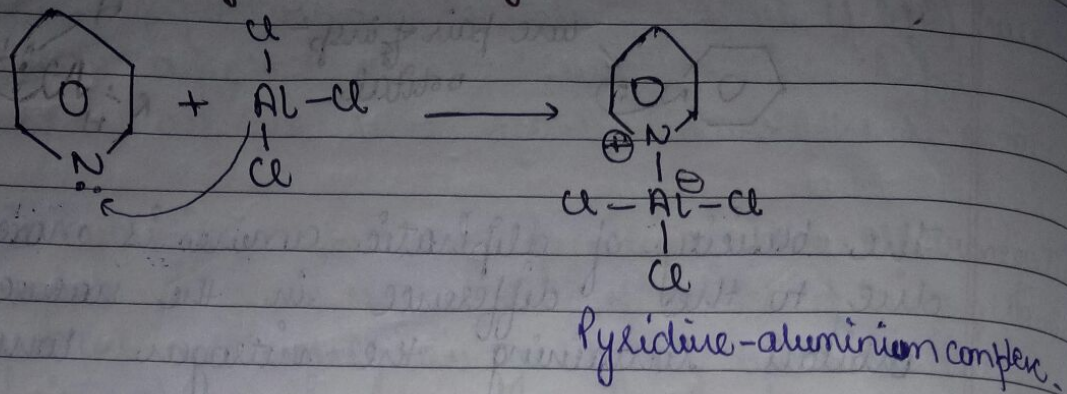 Cl
+ Al-Cl →
N Cl
⊕ N
Cl - Al⊖ - Cl
Cl
Pyridine-aluminium complex.